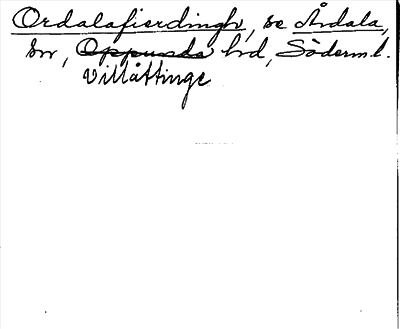 Ordalafierdingh, se Årdala,
sn, Oppunda hd, Söderm.l.
Villåttinge